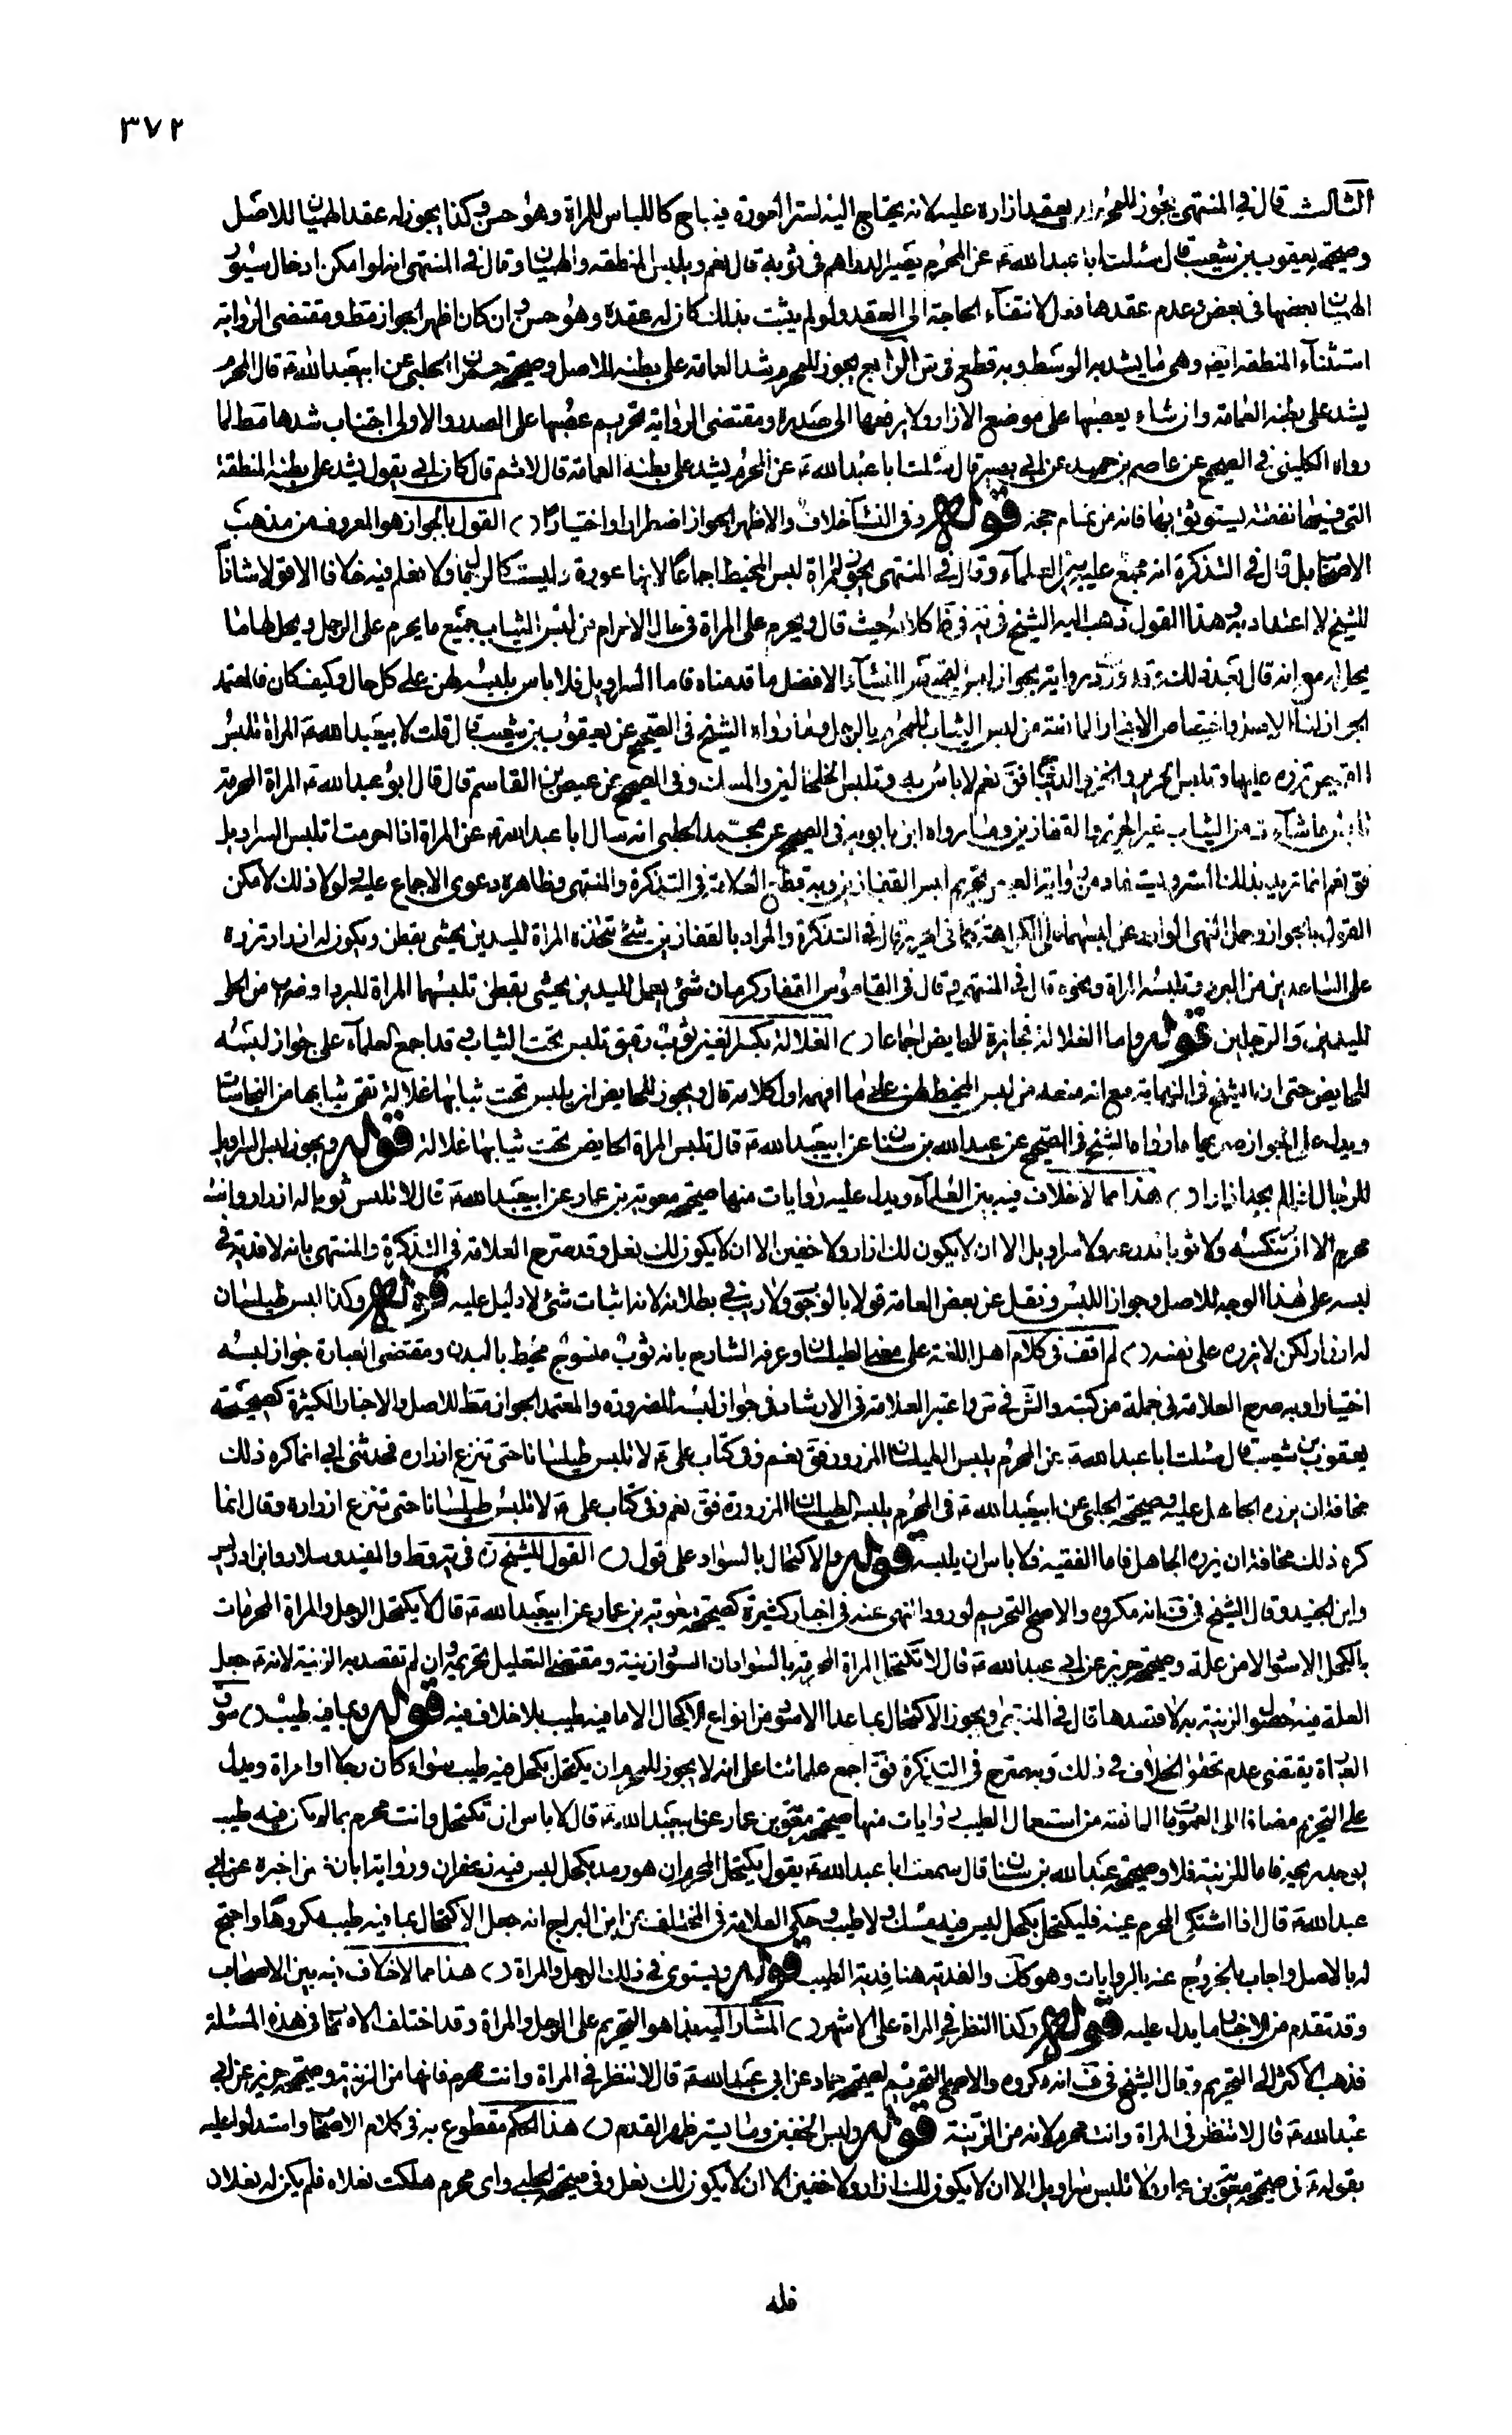 ٣٧٢
الثالث قال في المنتهى يجوز للمحرم ان يعقد ازاره عليه لانه يحتاج اليه لستر العورة فيباح كاللباس للمراة وهو حسن وكذا يجوز له عقد الهميان للاصل
وصحيحة يعقوب بن شعيب قال سئلت ابا عبد الله ع عن المحرم يصير الدراهم في ثوبه قال نعم ويلبس المنطقه والهميان وقال في المنتهى انه لو امكن ادخال سيور
الهميان بعضها في بعض وعدم عقدها فعل لانتفاء الحاجة الى العقد ولو لم يثبت بذلك كان له عقده وهو حسن وان كان اظهر الجواز مط ومقتضى الرواية
استثناء المنطقه ايضه وهي ما يشد به الوسط وبه قطع في س الرابع يجوز للمحرم شد العمامة على بطنه للاصل وصحيحة عمران الحلبي عن ابيعبد الله ع قال المحرم
يشد على بطنه العمامة وان شاء يعصبها على موضع الازار ولا يرفعها الى صدره ومقتضى الرواية تحريم عصبها على الصدر والاولى اجتناب شدها مط لما
رواه الكليني في الصحيح عن عاصم بن حميد عن ابي بصير قال سئلت ابا عبد الله ع عن المحرم يشد على بطنه العمامة قال لا ثم قال كان ابي يقول يشد على بطنه المنطقة
التي فيها نفقته يستوثق بها فانه من تمام حجه قوله وفي النساء خلاف والاظهر الجواز اضطرارا واختيارا ( ) القول بالجواز هو المعروف من مذهب
الاصحاب بل قال في التذكرة انه مجمع عليه بين العلماء وقال في المنتهى يجوز للمراة لبس المخيط اجماعا لانها عورة وليست كالرجال ولا نعلم فيه خلافا الا قولا شاذا
للشيخ لا اعتداد به هذا القول ذهب اليه الشيخ في يه في ظ كلامه حيث قال ويحرم على المراة في حال الاحرام من لبس الثياب جميع ما يحرم على الرجل ويحل لها ما
يحل له مع انه قال بعد ذلك وقد وردت رواية بجواز لبس القميص للنساء والافضل ما قدمناه فاما السراويل فلا باس بلبسه لهن على كل حال وكيف كان فالمعتمد
الجواز لنا الاصل واختصاص الاخبار المانعة من لبس الثياب للمحرم بالرجل وما رواه الشيخ في الصحيح عن يعقوب بن شعيب قال قلت لابيعبد الله ع المراة تلبس
القميص تزره عليها وتلبس الحرير والخز والديباج فق نعم لا باس به وتلبس الخلخالين والمسك وفي الصحيح عن عيص بن القاسم قال قال ابو عبد الله ع المراة المحرمة
تلبس ما شاءت من الثياب غير الحرير والقفازين وما رواه ابن بابويه في الصحيح عن محمد الحلبي انه سال ابا عبد الله ع عن المراة اذا احرمت اتلبس السراويل
فق نعم انما تريد بذلك الستر ويستفاد من رواية العيص تحريم لبس القفازين وبه قطع العلامة في التذكرة والمنتهى وظاهره دعوى الاجماع عليه ولولا ذلك لامكن
القول بالجواز وحمل النهى الوارد عن لبسهما على الكراهة كما في الحرير قال في التذكرة والمراد بالقفازين شئ تتخذه المراة لليدين يحشى بقطن ويكون له ازرار تزره
على الساعدين من البرد وتلبسه المراة ونحوه قال في المنتهى وقال في القاموس القفاز كرمان شئ يعمل لليدين يحشى بقطن تلبسهما المراة للبرد او ضرب من الحلى
لليدين والرجلين قوله واما الغلالة فجائزة للحايض اجماعا ( ) الغلالة بكسر الغين ثوب رقيق تلبس تحت الثياب وقد اجمع العلماء على جواز لبسه
للحايض حتى ان الشيخ في النهاية مع انه منعه من لبس المخيط لهن على ما افهمه اول كلامه قال ويجوز للحايض ان يلبس تحت ثيابها غلالة تقى ثيابها من النجاسات
ويدل على الجواز صريحا ما رواه الشيخ في الصحيح عن عبد الله بن سنان عن ابيعبد الله ع قال تلبس المراة الحايض تحت ثيابها غلالة قوله ويجوز لبس السراويل
للرجال اذا لم يجد ازارا ( ) هذا مما لا خلاف فيه بين العلماء ويدل عليه روايات منها صحيحة معوية بن عمار عن ابيعبد الله ع قال لا تلبس ثوبا له ازرار وانت
محرم الا ان تنكسه ولا ثوبا تدرعه ولا سراويل الا ان لا يكون لك ازار ولا خفين الا ان لا يكون لك نعل وقد صرح العلامة في التذكرة والمنتهى بانه لا فدية في
لبسه على هذا الوجه للاصل وجواز اللبس ونقل عن بعض العامة قولا بالوجوب ولا ريب في بطلانه لانه اثبات شئ لا دليل عليه قوله وكذا لبس طيلسان
له ازرار لكن لا يزره على نفسه ( ) لم اقف في كلام اهل اللغة على معنى الطيلسان وعرفه الشارح بانه ثوب منسوج محيط بالبدن ومقتضى العبارة جواز لبسه
اختيارا وبه صرح العلامة في جملة من كتبه والش في س واعتبر العلامة في الارشاد في جواز لبسه الضرورة والمعتمد الجواز مط للاصل والاخبار الكثيرة كصحيحة
يعقوب بن شعيب قال سئلت ابا عبد الله ع عن المحرم يلبس الطيلسان المزرور فق نعم وفي كتاب علي ع لا تلبس طيلسانا حتى تنزع ازراره فحدثني ابي انما كره ذلك
مخافة ان يزره الجاهل عليه وصحيحة الحلبي عن ابيعبد الله ع في المحرم يلبس الطيلسان المزرورة فق نعم وفي كتاب علي ع لا تلبس طيلسانا حتى تنزع ازراره وقال انما
كره ذلك مخافة ان يزره الجاهل فاما الفقيه فلا باس ان يلبسه قوله والاكتحال بالسواد على قول ( ) القول للشيخ ره في يه وط والمفيد وسلار وابن ادريس
وابن الجنيد وقال الشيخ في ف انه مكروه والاصح التحريم لورود النهى عنه في اخبار كثيرة كصحيحة معوية بن عمار عن ابيعبد الله ع قال لا يكتحل الرجل والمراة المحرمان
بالكحل الاسود الا من علة وصحيحة حريز عن ابي عبد الله ع قال لا تكتحل المراة المحرمة بالسواد ان السواد زينة ومقتضى التعليل تحريمه وان لم تقصد به الزينة لانه ع جعل
العلة فيه حصول الزينة به لا قصدها قال في المنتهى ويجوز الاكتحال بما عدا الاسود من انواع الاكحال الا ما فيه طيب بلا خلاف فيه قوله وبما فيه طيب ( ) سوق
العبارة يقتضى عدم تحقق الخلاف في ذلك وبه صرح في التذكرة فق اجمع علمائنا على انه لا يجوز للمحرم ان يكتحل بكحل فيه طيب سواء كان رجلا او امراة ويدل
على التحريم مضافا الى العمومات المانعة من استعمال الطيب روايات منها صحيحة معوية بن عمار عن ابيعبد الله ع قال لا باس ان تكتحل وانت محرم بما لم يكن فيه طيب
يوجد ريحه فاما للزينة فلا وصحيحة عبد الله بن سنان قال سمعت ابا عبد الله ع يقول يكتحل المحرم ان هو رمد بكحل ليس فيه زعفران ورواية ابان عن من اخبره عن ابي
عبد الله ع قال اذا اشتكى المحرم عينه فليكتحل بكحل ليس فيه مسك ولا طيب وحكى العلامة في المختلف عن ابن البراج انه جعل الاكتحال بما فيه طيب مكروها واحتج
له بالاصل واجاب بالخروج عنه بالروايات وهو كك والفدية هنا فدية الطيب قوله ويستوى في ذلك الرجل والمراة ( ) هذا مما لا خلاف فيه بين الاصحاب
وقد تقدم من الاخبار ما يدل عليه قوله وكذا النظر في المراة على الاشهر ( ) المشار اليه بذا هو التحريم على الرجل والمراة وقد اختلف الاصحاب في هذه المسئلة
فذهب الاكثر الى التحريم وقال الشيخ في ف انه مكروه والاصح التحريم لصحيحة حماد عن ابي عبد الله ع قال لا تنظر في المراة وانت محرم فانها من الزينة وصحيحة حريز عن ابي
عبد الله ع قال لا تنظر في المراة وانت محرم لانه من الزينة قوله ولبس الخفين وما يستر ظهر القدم ( ) هذا الحكم مقطوع به في كلام الاصحاب واستدلوا عليه
بقوله ع في صحيحة معوية بن عمار ولا تلبس سراويل الا ان لا يكون لك ازار ولا خفين الا ان لا يكون لك نعل وفي صحيحة الحلبي واى محرم هلكت نعلاه فلم يكن له نعلان
فله